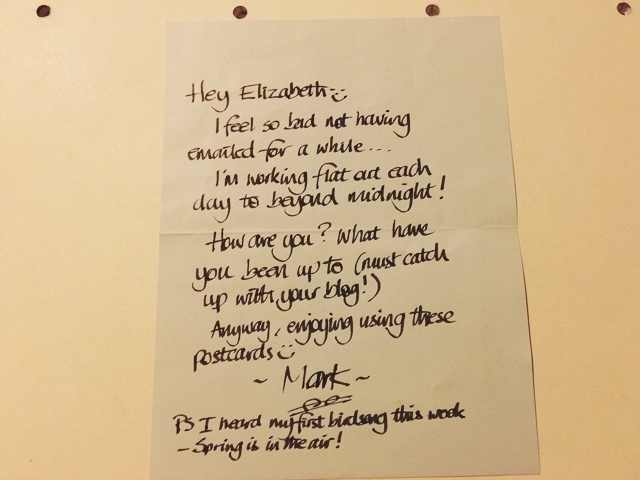 Hey Elizabeth :)
I feel so bad not having
emailed for a while...
I'm working flat out each
day to beyond midnight!
How are you? What have
you been up to (must catch
up with your blog!)
Anyway, enjoying using these
postcards :)
~ Mark ~
PS I heard my first birdsong this week
- Spring is in the air!